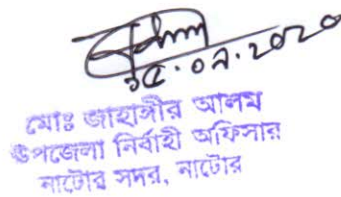 ১৫.০৯.২০২০
মোঃ জাহাঙ্গীর আলম
উপজেলা নির্বাহী অফিসার
নাটোর সদর, নাটোর